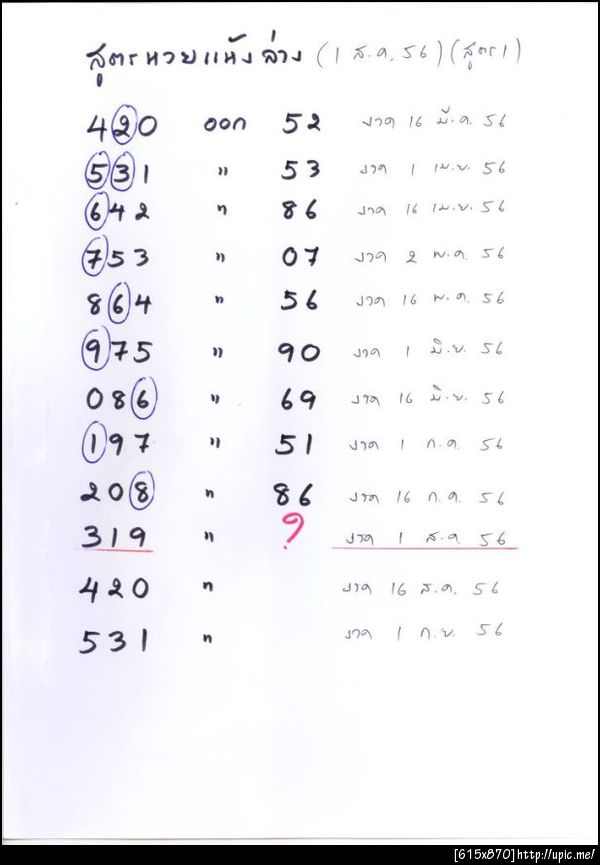 สูตรหวยแห้งล่าง (1 ส.ค. 56) (สูตร 1)
420 ออก 52 งวด 16 มี.ค. 56
531 " 53 งวด 1 เม.ย. 56
642 " 86 งวด 16 เม.ย. 56
753 " 07 งวด 2 พ.ค. 56
864 " 56 งวด 16 พ.ค. 56
975 " 90 งวด 1 มิ.ย. 56
086 " 69 งวด 16 มิ.ย. 56
197 " 51 งวด 1 ก.ค. 56
208 " 86 งวด 16 ก.ค. 56
319 " ? งวด 1 ส.ค. 56
420 " งวด 16 ส.ค. 56
531 " งวด 1 ก.ย. 56
[615x870]http://upic.me/